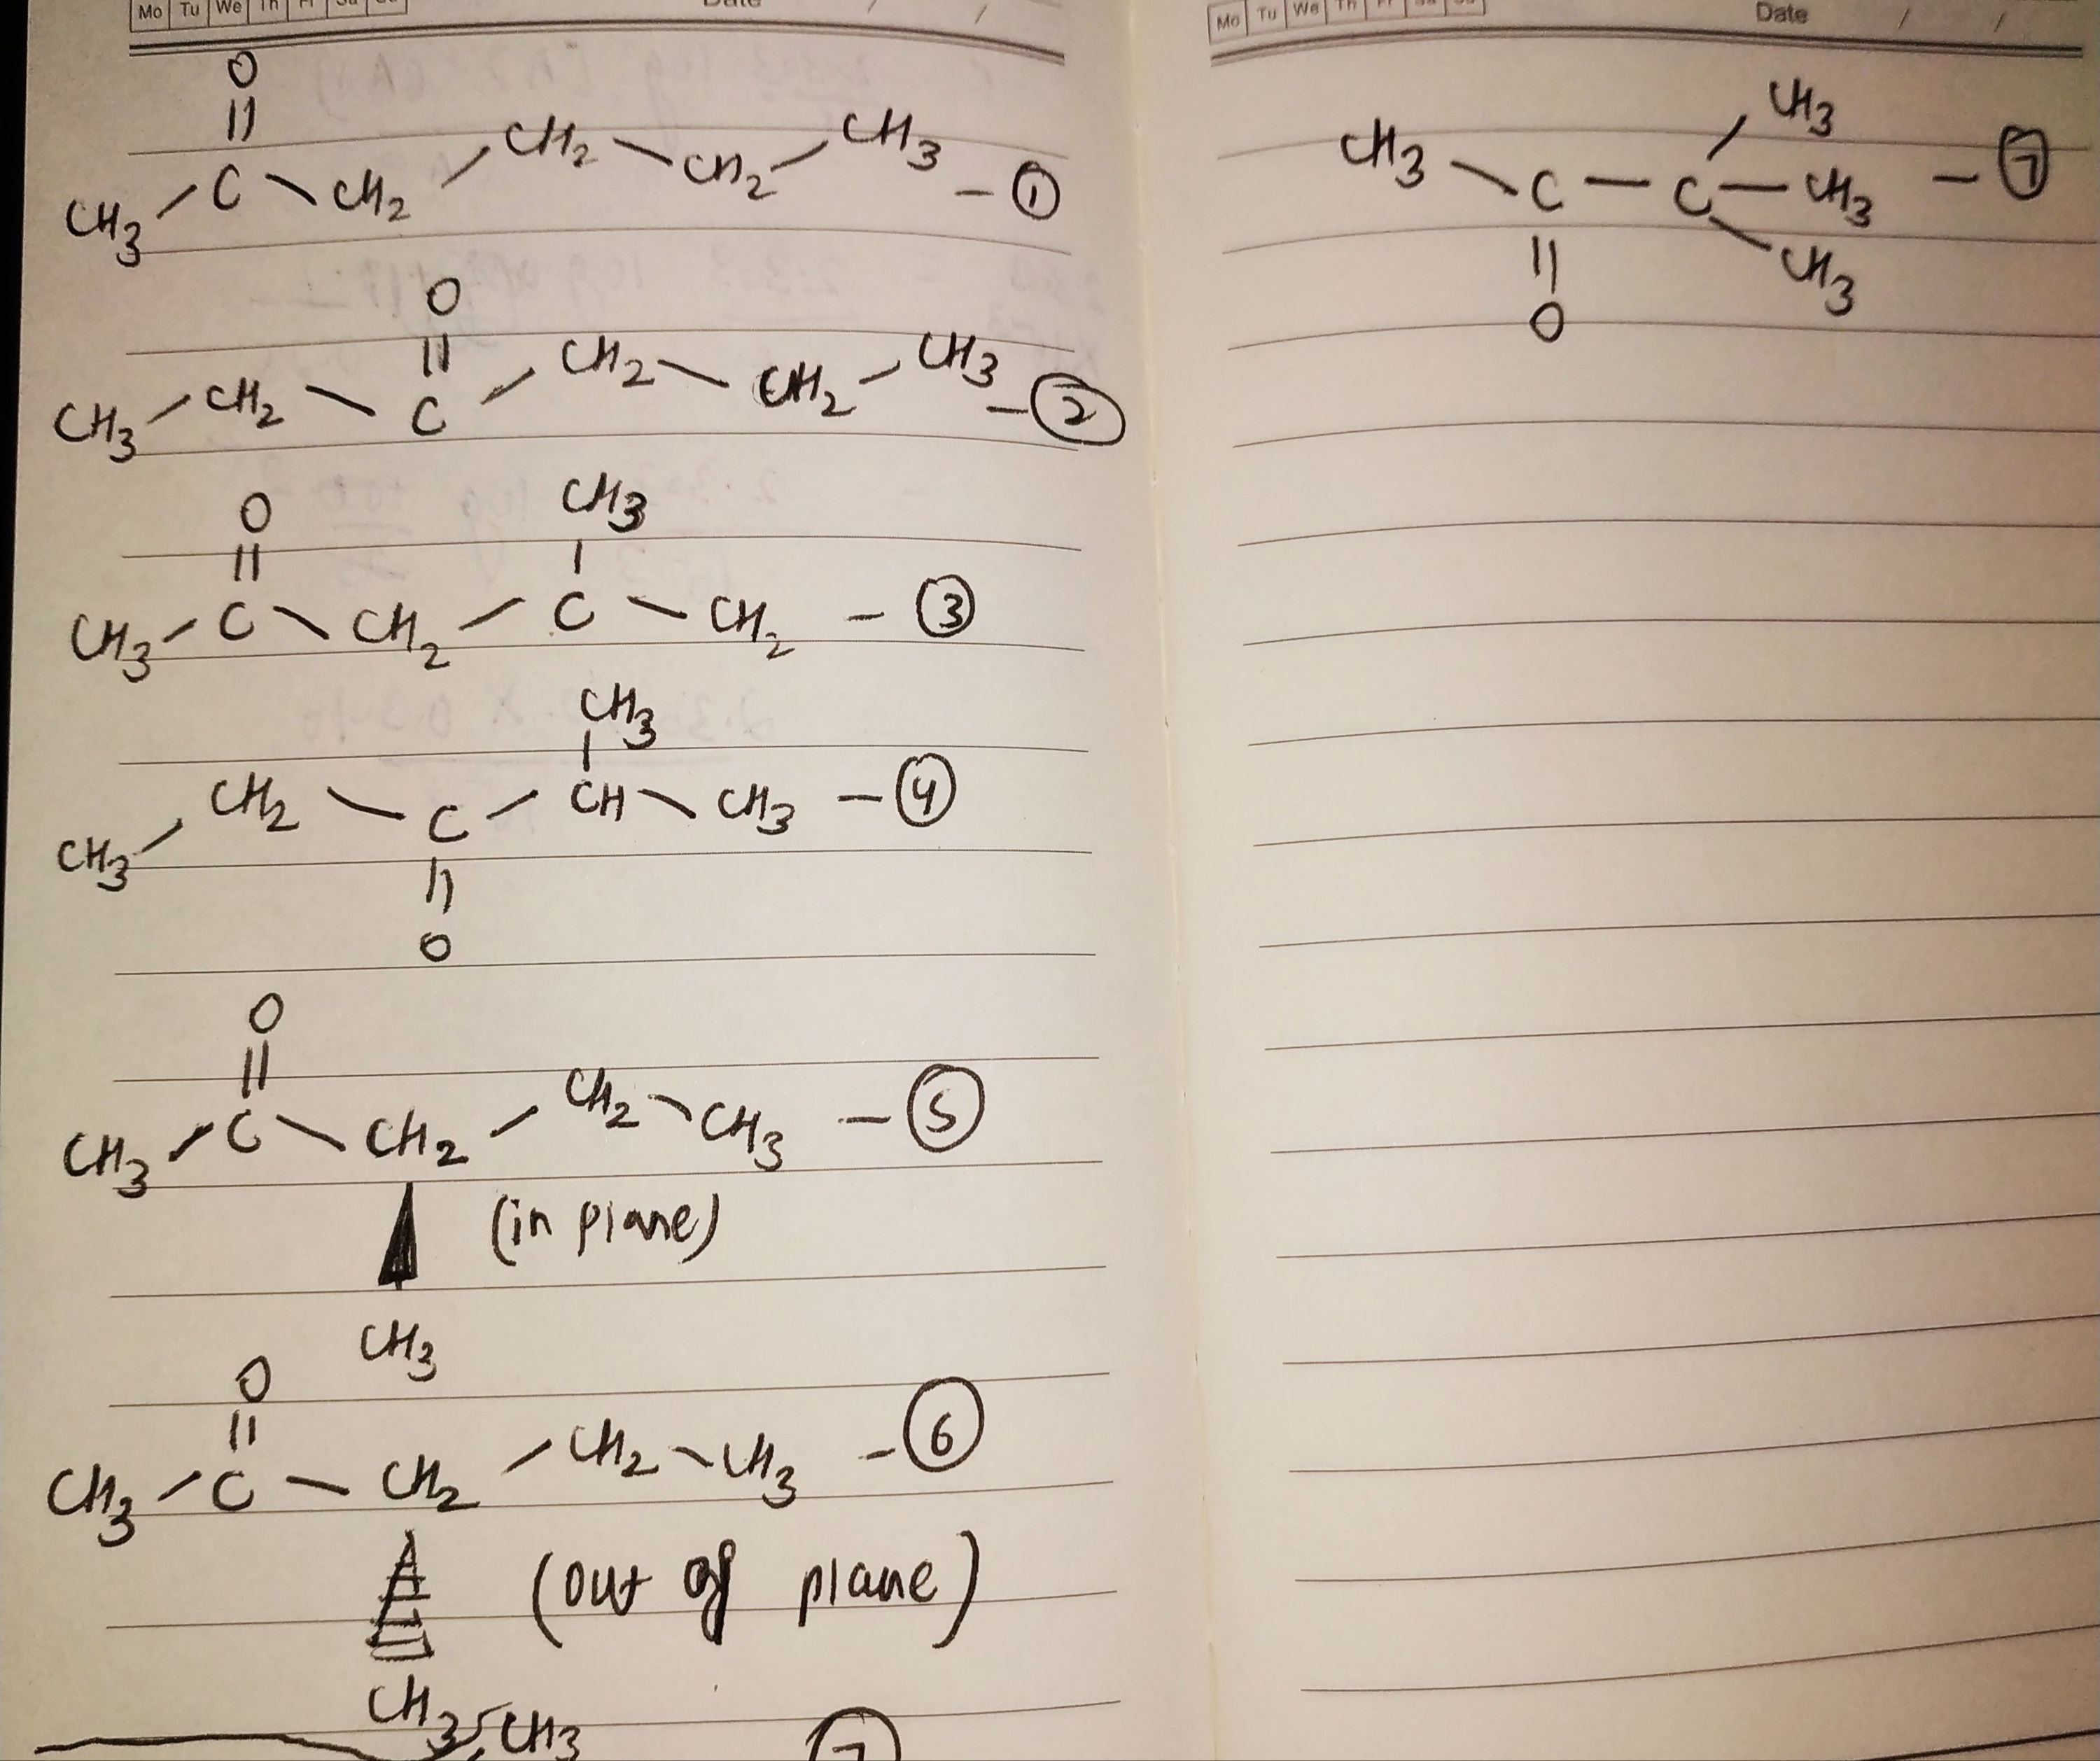 Mo Tu We Th Fr Sa Su Date / /
O
||
CH3 / C \ CH2 / CH2 \ CH2 / CH3 - ①
O
||
CH3 / CH2 \ C / CH2 \ CH2 / CH3 - ②
O CH3
|| |
CH3 / C \ CH2 / C \ CH2 - ③
CH3
|
CH3 / CH2 \ C / CH \ CH3 - ④
||
O
O
||
CH3 / C \ CH2 / CH2 \ CH3 - ⑤
(in plane)
CH3
O
||
CH3 / C - CH2 / CH2 \ CH3 - ⑥
(out of plane)
CH3
CH3 ⑦
Mo Tu We Th Fr Sa Su Date / /
CH3
CH3 \ C - C - CH3 - ⑦
|| CH3
O